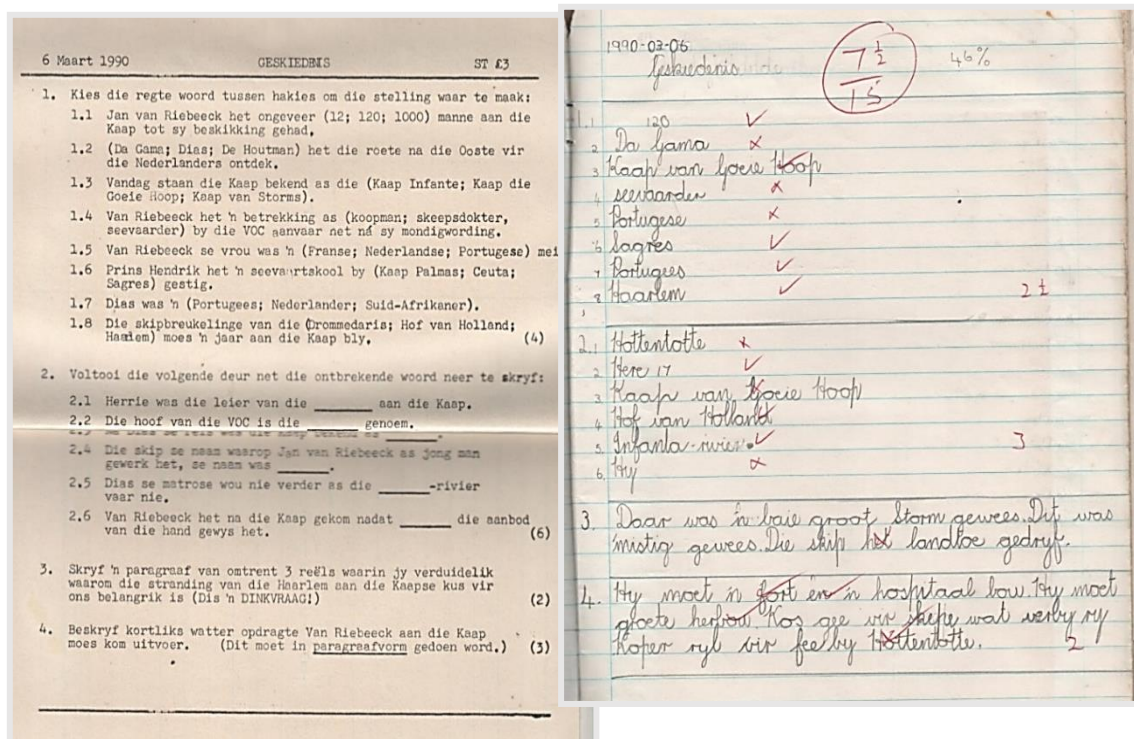 6 Maart 1990 GESKIEDENIS ST £3
1. Kies die regte woord tussen hakies om die stelling waar te maak:
1.1 Jan van Riebeeck het ongeveer (12; 120; 1000) manne aan die
Kaap tot sy beskikking gehad.
1.2 (Da Gama; Dias; De Houtman) het die roete na die Ooste vir
die Nederlanders ontdek.
1.3 Vandag staan die Kaap bekend as die (Kaap Infante; Kaap die
Goeie Hoop; Kaap van Storms).
1.4 Van Riebeeck het 'n betrekking as (koopman; skeepsdokter,
seevaarder) by die VOC aanvaar net ná sy mondigwording.
1.5 Van Riebeeck se vrou was 'n (Franse; Nederlandse; Portugese) mei
1.6 Prins Hendrik het 'n seevaartskool by (Kaap Palmas; Ceuta;
Sagres) gestig.
1.7 Dias was 'n (Portugees; Nederlander; Suid-Afrikaner).
1.8 Die skipbreukelinge van die (Drommedaris; Hof van Holland;
Haarlem) moes 'n jaar aan die Kaap bly. (4)
2. Voltooi die volgende deur net die ontbrekende woord neer te skryf:
2.1 Herrie was die leier van die ______ aan die Kaap.
2.2 Die hoof van die VOC is die ______ genoem.
2.4 Die skip se naam waarop Jan van Riebeeck as jong man
gewerk het, se naam was ______.
2.5 Dias se matrose wou nie verder as die ______-rivier
vaar nie.
2.6 Van Riebeeck het na die Kaap gekom nadat ______ die aanbod
van die hand gewys het. (6)
3. Skryf 'n paragraaf van omtrent 3 reëls waarin jy verduidelik
waarom die stranding van die Haarlem aan die Kaapse kus vir
ons belangrik is (Dis 'n DINKVRAAG!) (2)
4. Beskryf kortliks watter opdragte Van Riebeeck aan die Kaap
moes kom uitvoer. (Dit moet in paragraafvorm gedoen word.) (3)
1990-03-06
Geskiedenis
7 ½
15
46%
1.1 120
2 Da Gama
3 Kaap van Goeie Hoop
4 seevaarder
5 Portugese
6 Sagres
7 Portugees
8 Haarlem
2.1 Hottentotte
2 Here 17
3 Kaap van Goeie Hoop
4 Hof van Holland
5 Infanta-rivier
3
6. Hy
3. Daar was 'n baie groot Storm gewees. Dit was
mistig gewees. Die skip het landtoe gedryf.
4. Hy moet 'n fort en 'n hospitaal bou. Hy moet
groete herbou. Kos gee vir skepe wat verby ry
Koper ryl vir fee by Hottentotte.
2